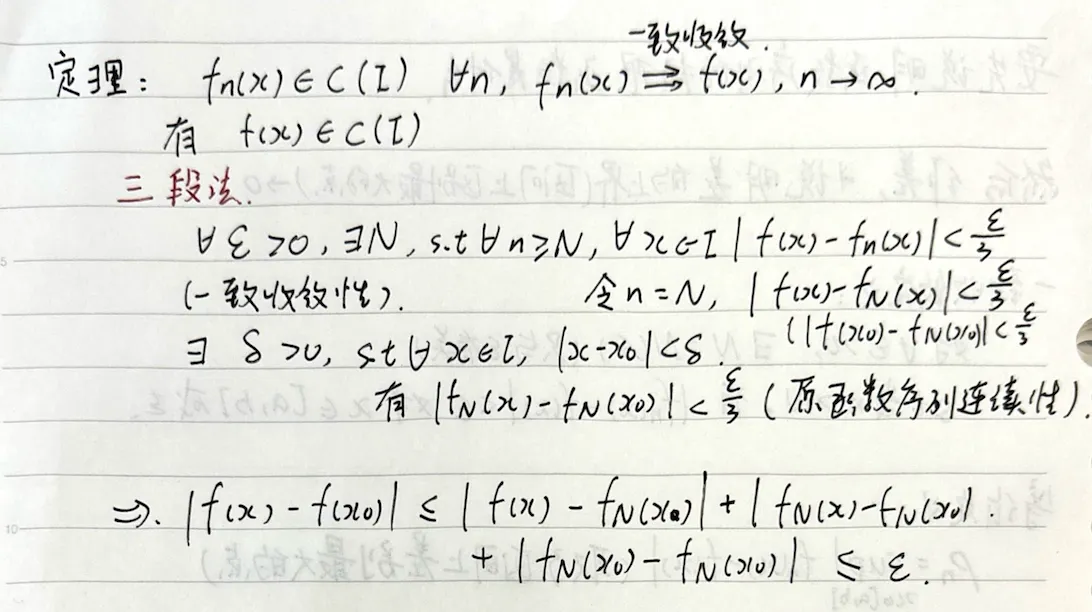 一致收敛.
定理: fn(x)∈C(I) ∀n, fn(x)⇉f(x), n→∞.
有 f(x)∈C(I)
三段法.
∀ε>0, ∃N, s.t ∀n≥N, ∀x∈I |f(x)-fn(x)|<ε/3
(一致收敛性). 令n=N, |f(x)-fN(x)|<ε/3
(|f(x0)-fN(x0)|<ε/3
∃ δ>0, s.t ∀x∈I, |x-x0|<δ.
有 |fN(x)-fN(x0)|<ε/3 (原函数序列连续性).
⇒. |f(x)-f(x0)| ≤ |f(x)-fN(x)|+|fN(x)-fN(x0)|.
+|fN(x0)-fN(x0)| ≤ ε.